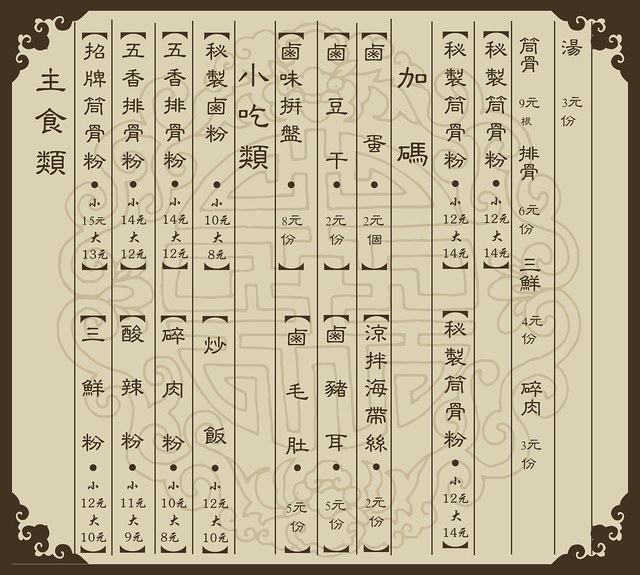 主食類
【招牌筒骨粉•小15元大13元】
【三鮮粉•小12元大10元】
【五香排骨粉•小14元大12元】
【酸辣粉•小11元大9元】
【五香排骨粉•小14元大12元】
【碎肉粉•小10元大8元】
【秘製鹵粉•小10元大8元】
【炒飯•小12元大10元】
小吃類
【鹵味拼盤•8元份】
【鹵毛肚•5元份】
【鹵豆干•2元份】
【鹵豬耳•5元份】
【鹵蛋•2元個】
【涼拌海帶絲•2元份】
加碼
【秘製筒骨粉•小12元大14元】
【秘製筒骨粉•小12元大14元】
【秘製筒骨粉•小12元大14元】
筒骨 9元根 排骨 6元份 三鮮 4元份 碎肉 3元份
湯 3元份